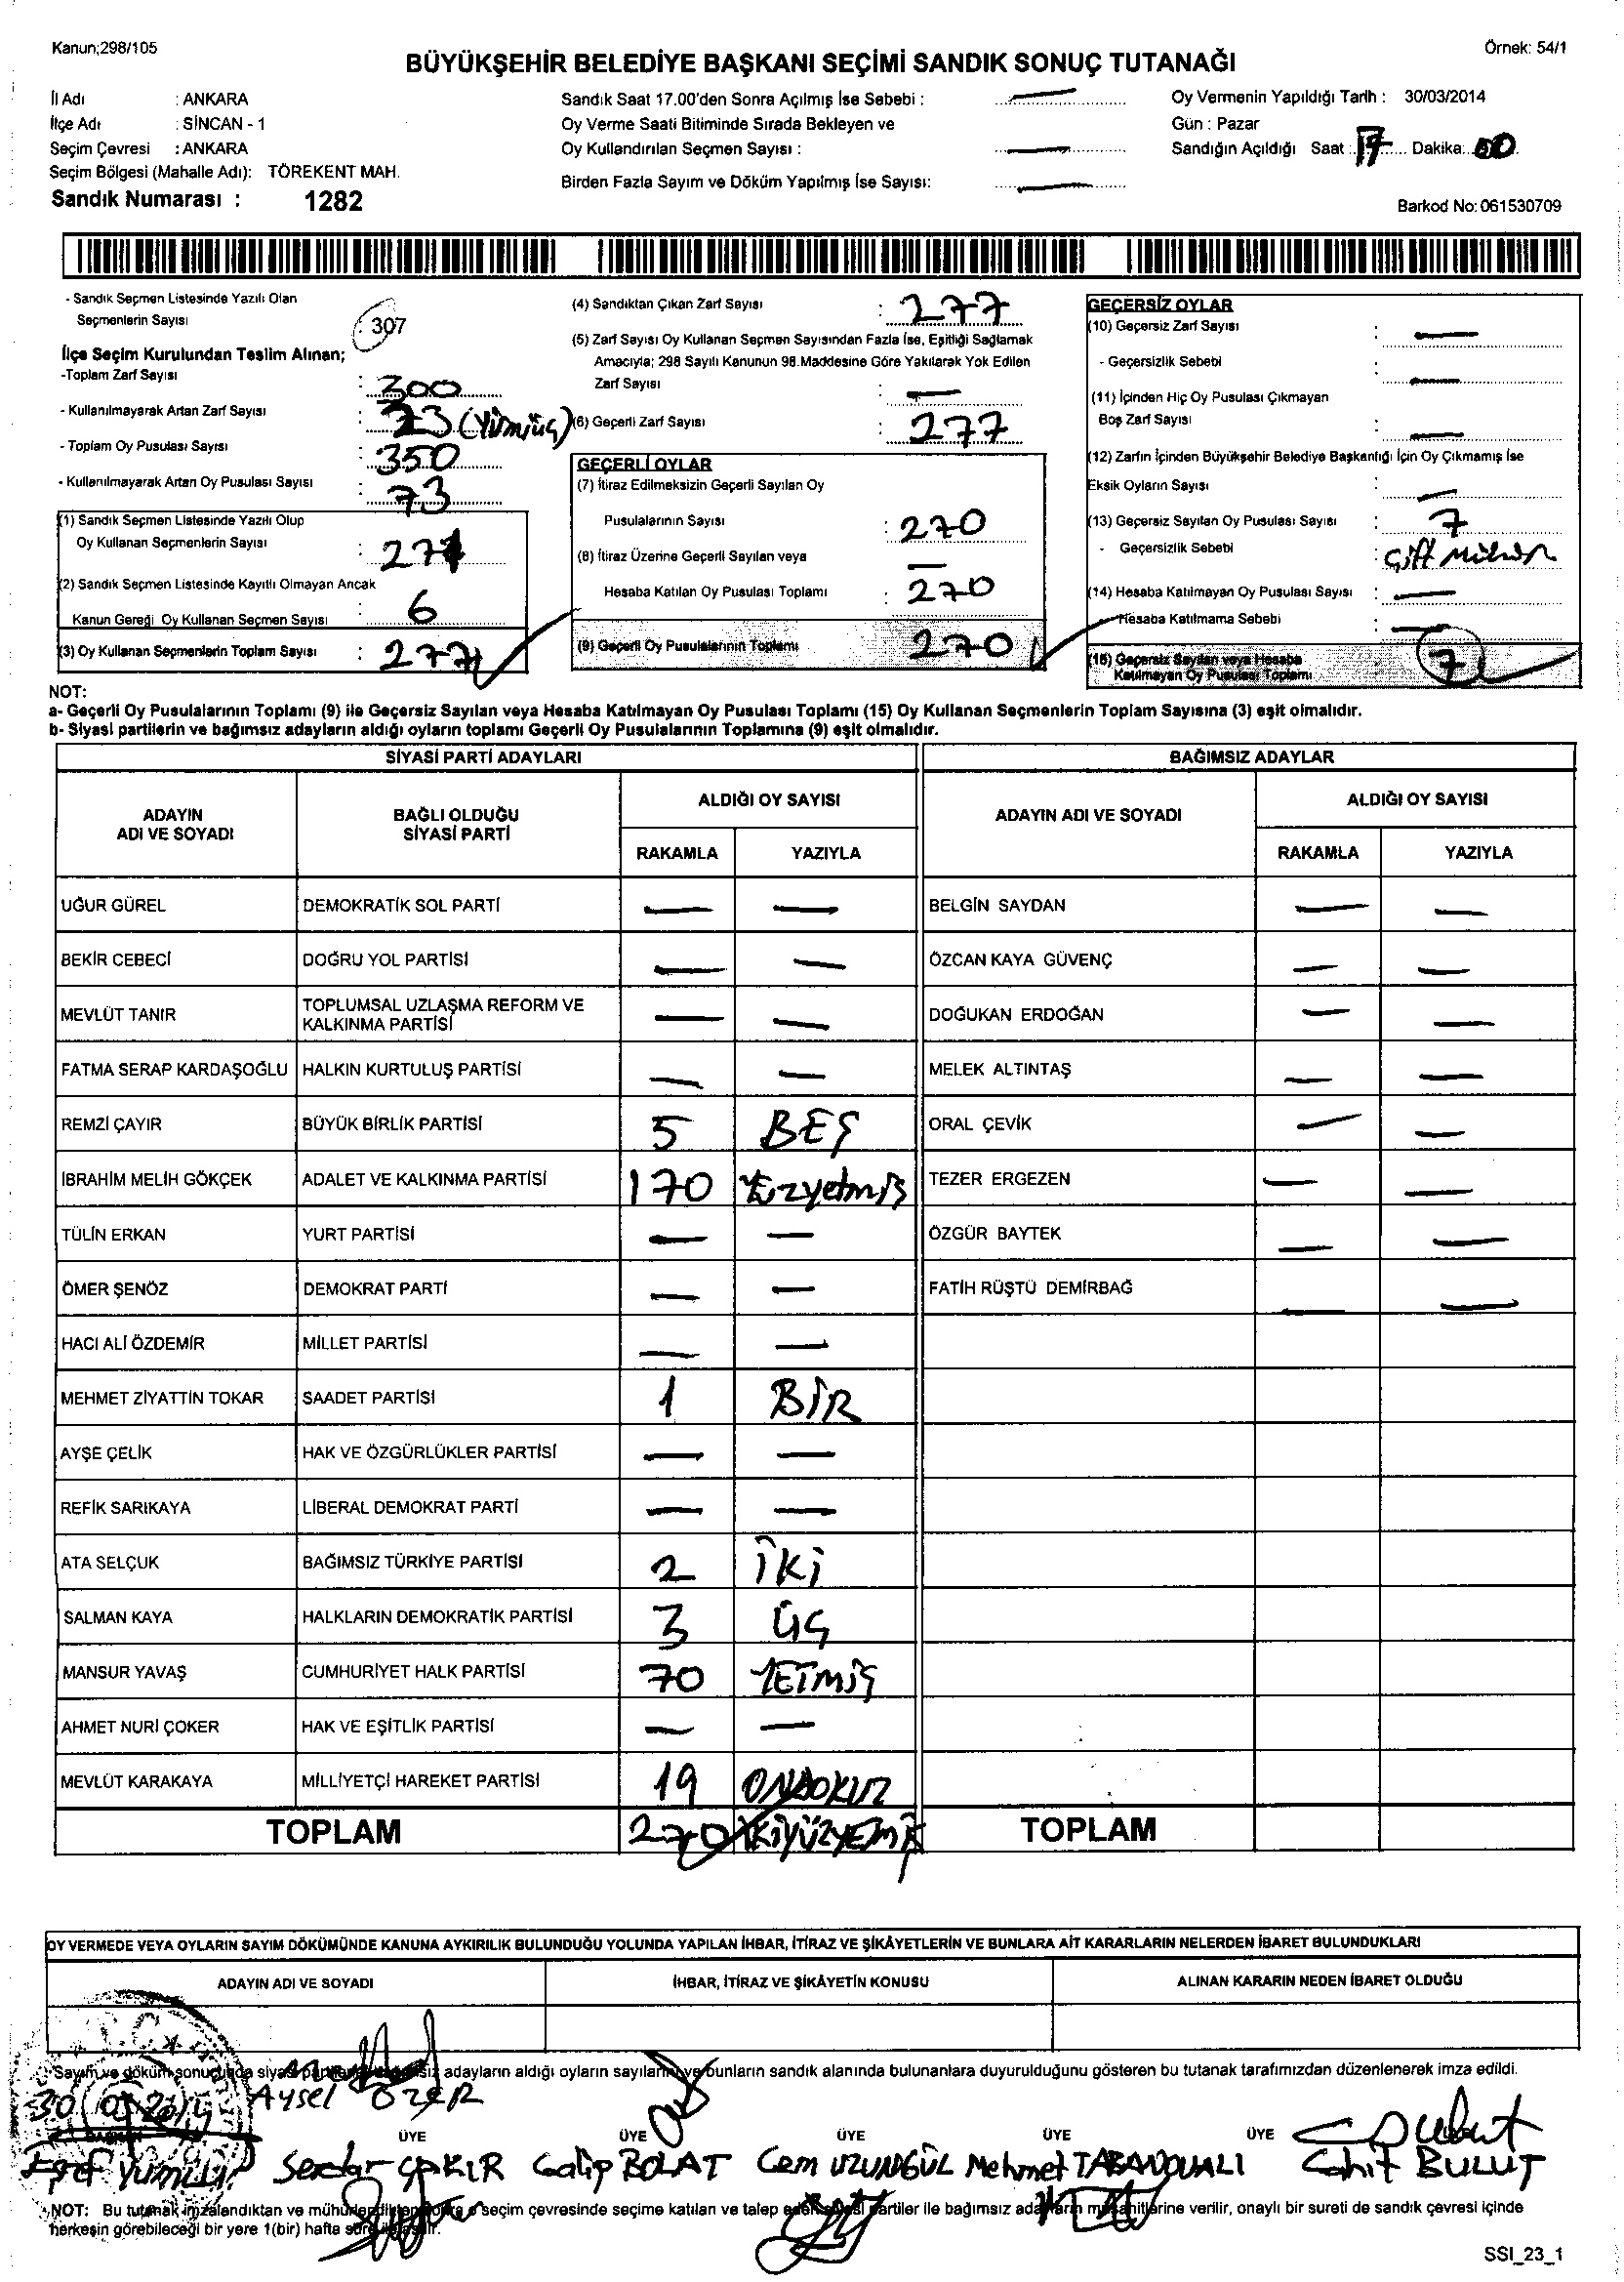 Kanun;298/105
Örnek: 54/1
BÜYÜKŞEHİR BELEDİYE BAŞKANI SEÇİMİ SANDIK SONUÇ TUTANAĞI
İl Adı : ANKARA
İlçe Adı : SİNCAN - 1
Seçim Çevresi : ANKARA
Seçim Bölgesi (Mahalle Adı): TÖREKENT MAH.
Sandık Numarası : 1282
Sandık Saat 17.00'den Sonra Açılmış İse Sebebi : —
Oy Verme Saati Bitiminde Sırada Bekleyen ve
Oy Kullandırılan Seçmen Sayısı : —
Birden Fazla Sayım ve Döküm Yapılmış İse Sayısı: —
Oy Vermenin Yapıldığı Tarih : 30/03/2014
Gün : Pazar
Sandığın Açıldığı Saat : 17 Dakika: 00
Barkod No:061530709
- Sandık Seçmen Listesinde Yazılı Olan
Seçmenlerin Sayısı : 307
İlçe Seçim Kurulundan Teslim Alınan;
-Toplam Zarf Sayısı : 300
- Kullanılmayarak Artan Zarf Sayısı : 23 (Yirmiüç)
- Toplam Oy Pusulası Sayısı : 350
- Kullanılmayarak Artan Oy Pusulası Sayısı : 73
(1) Sandık Seçmen Listesinde Yazılı Olup
Oy Kullanan Seçmenlerin Sayısı : 271
(2) Sandık Seçmen Listesinde Kayıtlı Olmayan Ancak
Kanun Gereği Oy Kullanan Seçmen Sayısı : 6
(3) Oy Kullanan Seçmenlerin Toplam Sayısı : 277
(4) Sandıktan Çıkan Zarf Sayısı : 277
(5) Zarf Sayısı Oy Kullanan Seçmen Sayısından Fazla İse, Eşitliği Sağlamak
Amacıyla; 298 Sayılı Kanunun 98.Maddesine Göre Yakılarak Yok Edilen
Zarf Sayısı : —
(6) Geçerli Zarf Sayısı : 277
GEÇERLİ OYLAR
(7) İtiraz Edilmeksizin Geçerli Sayılan Oy
Pusulalarının Sayısı : 270
(8) İtiraz Üzerine Geçerli Sayılan veya —
Hesaba Katılan Oy Pusulası Toplamı : 270
(9) Geçerli Oy Pusulalarının Toplamı 270
GEÇERSİZ OYLAR
(10) Geçersiz Zarf Sayısı : —
- Geçersizlik Sebebi : —
(11) İçinden Hiç Oy Pusulası Çıkmayan
Boş Zarf Sayısı : —
(12) Zarfın İçinden Büyükşehir Belediye Başkanlığı İçin Oy Çıkmamış İse
Eksik Oyların Sayısı : —
(13) Geçersiz Sayılan Oy Pusulası Sayısı : 7
- Geçersizlik Sebebi : Çift Mühür
(14) Hesaba Katılmayan Oy Pusulası Sayısı : —
- Hesaba Katılmama Sebebi : —
(15) Geçersiz Sayılan veya Hesaba
Katılmayan Oy Pusulası Toplamı 7
NOT:
a- Geçerli Oy Pusulalarının Toplamı (9) ile Geçersiz Sayılan veya Hesaba Katılmayan Oy Pusulası Toplamı (15) Oy Kullanan Seçmenlerin Toplam Sayısına (3) eşit olmalıdır.
b- Siyasi partilerin ve bağımsız adayların aldığı oyların toplamı Geçerli Oy Pusulalarının Toplamına (9) eşit olmalıdır.
SİYASİ PARTİ ADAYLARI
ADAYIN ADI VE SOYADI
BAĞLI OLDUĞU SİYASİ PARTİ
ALDIĞI OY SAYISI
RAKAMLA YAZIYLA
UĞUR GÜREL DEMOKRATİK SOL PARTİ — —
BEKİR CEBECİ DOĞRU YOL PARTİSİ — —
MEVLÜT TANIR TOPLUMSAL UZLAŞMA REFORM VE KALKINMA PARTİSİ — —
FATMA SERAP KARDAŞOĞLU HALKIN KURTULUŞ PARTİSİ — —
REMZİ ÇAYIR BÜYÜK BİRLİK PARTİSİ 5 BEŞ
İBRAHİM MELİH GÖKÇEK ADALET VE KALKINMA PARTİSİ 170 Yüzyetmiş
TÜLİN ERKAN YURT PARTİSİ — —
ÖMER ŞENÖZ DEMOKRAT PARTİ — —
HACI ALİ ÖZDEMİR MİLLET PARTİSİ — —
MEHMET ZİYATTİN TOKAR SAADET PARTİSİ 1 BİR
AYŞE ÇELİK HAK VE ÖZGÜRLÜKLER PARTİSİ — —
REFİK SARIKAYA LİBERAL DEMOKRAT PARTİ — —
ATA SELÇUK BAĞIMSIZ TÜRKİYE PARTİSİ 2 İKİ
SALMAN KAYA HALKLARIN DEMOKRATİK PARTİSİ 3 ÜÇ
MANSUR YAVAŞ CUMHURİYET HALK PARTİSİ 70 YETMİŞ
AHMET NURİ ÇOKER HAK VE EŞİTLİK PARTİSİ — —
MEVLÜT KARAKAYA MİLLİYETÇİ HAREKET PARTİSİ 19 ONDOKUZ
TOPLAM 270 İKİYÜZYEMİŞ
BAĞIMSIZ ADAYLAR
ADAYIN ADI VE SOYADI
ALDIĞI OY SAYISI
RAKAMLA YAZIYLA
BELGİN SAYDAN — —
ÖZCAN KAYA GÜVENÇ — —
DOĞUKAN ERDOĞAN — —
MELEK ALTINTAŞ — —
ORAL ÇEVİK — —
TEZER ERGEZEN — —
ÖZGÜR BAYTEK — —
FATİH RÜŞTÜ DEMİRBAĞ — —
TOPLAM
OY VERMEDE VEYA OYLARIN SAYIM DÖKÜMÜNDE KANUNA AYKIRILIK BULUNDUĞU YOLUNDA YAPILAN İHBAR, İTİRAZ VE ŞİKÂYETLERİN VE BUNLARA AİT KARARLARIN NELERDEN İBARET BULUNDUKLARI
ADAYIN ADI VE SOYADI İHBAR, İTİRAZ VE ŞİKÂYETİN KONUSU ALINAN KARARIN NEDEN İBARET OLDUĞU
Sayım ve döküm sonucunda siyasi adayların aldığı oyların sayılarını ve bunların sandık alanında bulunanlara duyurulduğunu gösteren bu tutanak tarafımızdan düzenlenerek imza edildi.
Aysel ÖZER
BAŞKAN ÜYE ÜYE ÜYE ÜYE ÜYE
Serdar ÇAKIR Galip BOLAT Cem UZUNGÜL Mehmet Cahit BULUT
NOT: Bu tutanak imzalandıktan ve mühürlendikten sonra o seçim çevresinde seçime katılan ve talep eden siyasi partiler ile bağımsız adayların müşahitlerine verilir, onaylı bir sureti de sandık çevresi içinde
herkesin görebileceği bir yere 1(bir) hafta süre
SSI_23_1